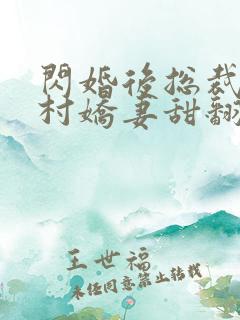 閃婚後總裁
村嬌妻甜翻
王世福
未經同意禁止轉載